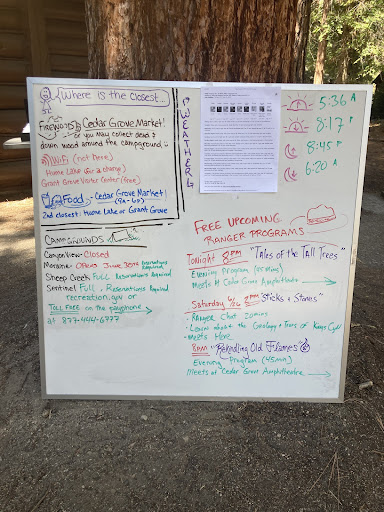 Where is the Closest...
Firewood - Cedar Grove Market!
or you may collect dead &
down wood around the campground
Wifi (not here)
Hume Lake (for a charge)
Grant Grove Visitor Center (free)
Food - Cedar Grove Market!
(9A-6P)
2nd closest: Hume Lake or Grant Grove
WEATHER
5:36 A
8:17 P
8:45 P
6:20 A
CAMPGROUNDS
Canyon View - CLOSED
Moraine - Opens June 30th Reservations Required
Sheep Creek Full, Reservations Required
Sentinel Full, Reservations Required
recreation.gov or
TOLL FREE on the payphone
at 877-444-6777
FREE UPCOMING
RANGER PROGRAMS
Tonight 8pm "Tales of the Tall Trees"
Evening Program (45 mins)
Meets @ Cedar Grove Amphitheatre
Saturday 6/26 2pm "Sticks & Stones"
- Ranger Chat 20mins
- Learn about the Geology & trees of Kings Cyn
- Meets Here
8pm "Rekindling Old Flames"
Evening Program (45min)
Meets at Cedar Grove Amphitheatre